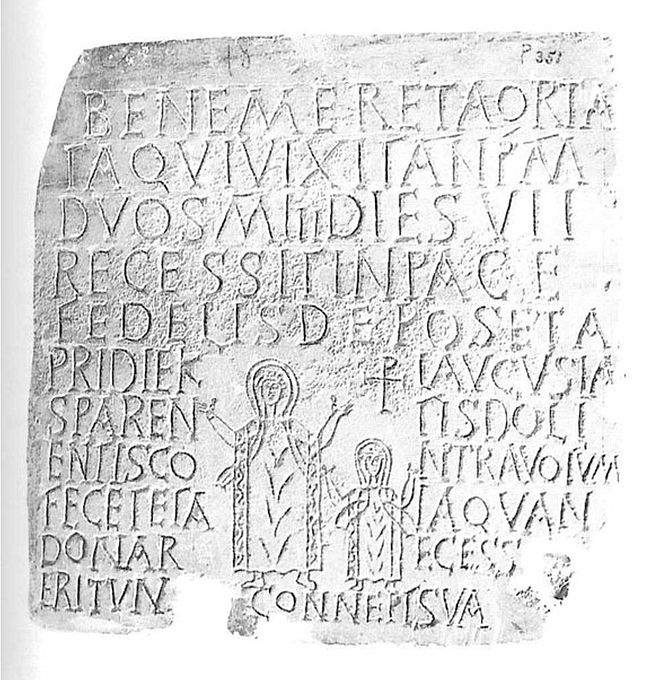 P 351
BENEMERETAORIA
TAQVIVIXITANPM
DVOSMIIIDIES VII
RECESSITINPACE
FEDELISDEPOSETA
PRIDIEK LAVGVSTA
SPAREN TISDOLI
ENTISCO NTRAVOTVM
FECETETA TAQVAN
DONAR ECESS
ERITVN CONNEPTSVA